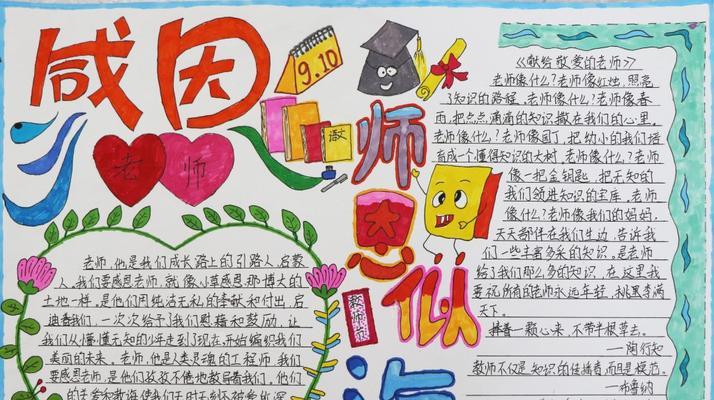 感恩
老师
9.10
师恩似海
教师节
老师,他是我们成长路上的引路人,启蒙
人,我们要感恩老师,就像小草感恩那博大的
土地一样,是他们用纯洁无私的奉献和付出,启
迪着我们,一次次给予了我们慰藉和鼓励,让
我们从懵懂无知的少年走到了现在,开始编织我们
美丽的未来。老师,他是人类灵魂的工程师,我们
要感恩老师,是他们孜孜不倦地教导着我们,他们
的关爱和教诲使我们
《献给敬爱的老师》
老师像什么?老师像红烛,照亮
了知识的路程,老师像什么?老师像春
雨,把点点滴滴的知识撒在我们的心里。
老师像什么?老师像园丁,把幼小的我们培
育成一个懂得知识的大树,老师像什么?老师
像一把金钥匙,把无知的
我们领进知识的宝库,老师
像什么?老师像我们的妈妈,
天天都伴在我们身边,告诉我
们一些丰富多采的知识。是老师
给了我们那么多的知识,在这里我
要祝所有的老师永远年轻,桃李满
天下。
捧着一颗心来,不带半根草去。
—陶行知
教师不仅是知识的传播者,而且是模范。
—布鲁纳